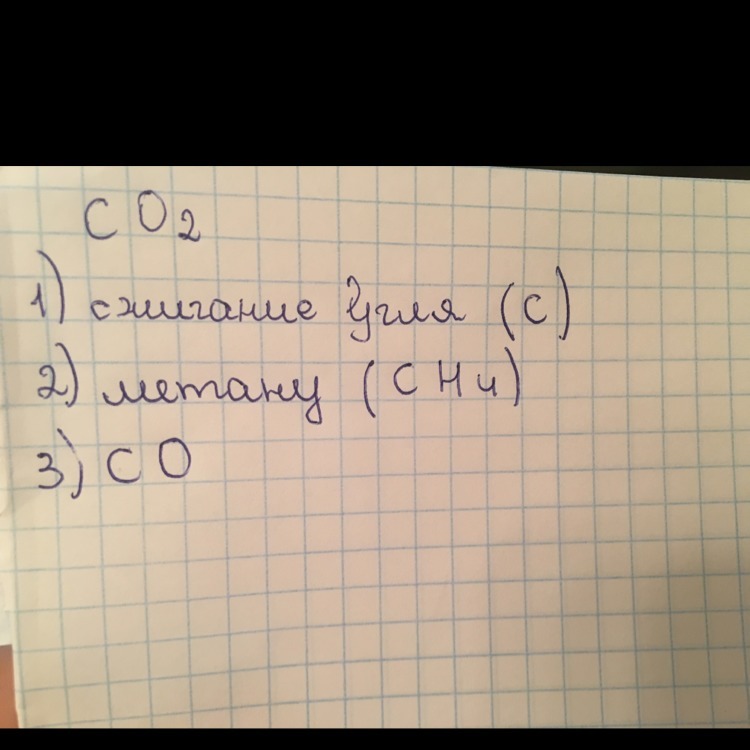 CO2
1) сжигание угля (C)
2) метану (CH4)
3) CO